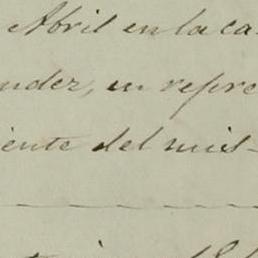 Abril en la ca-
nder, en repre
iente del mis-